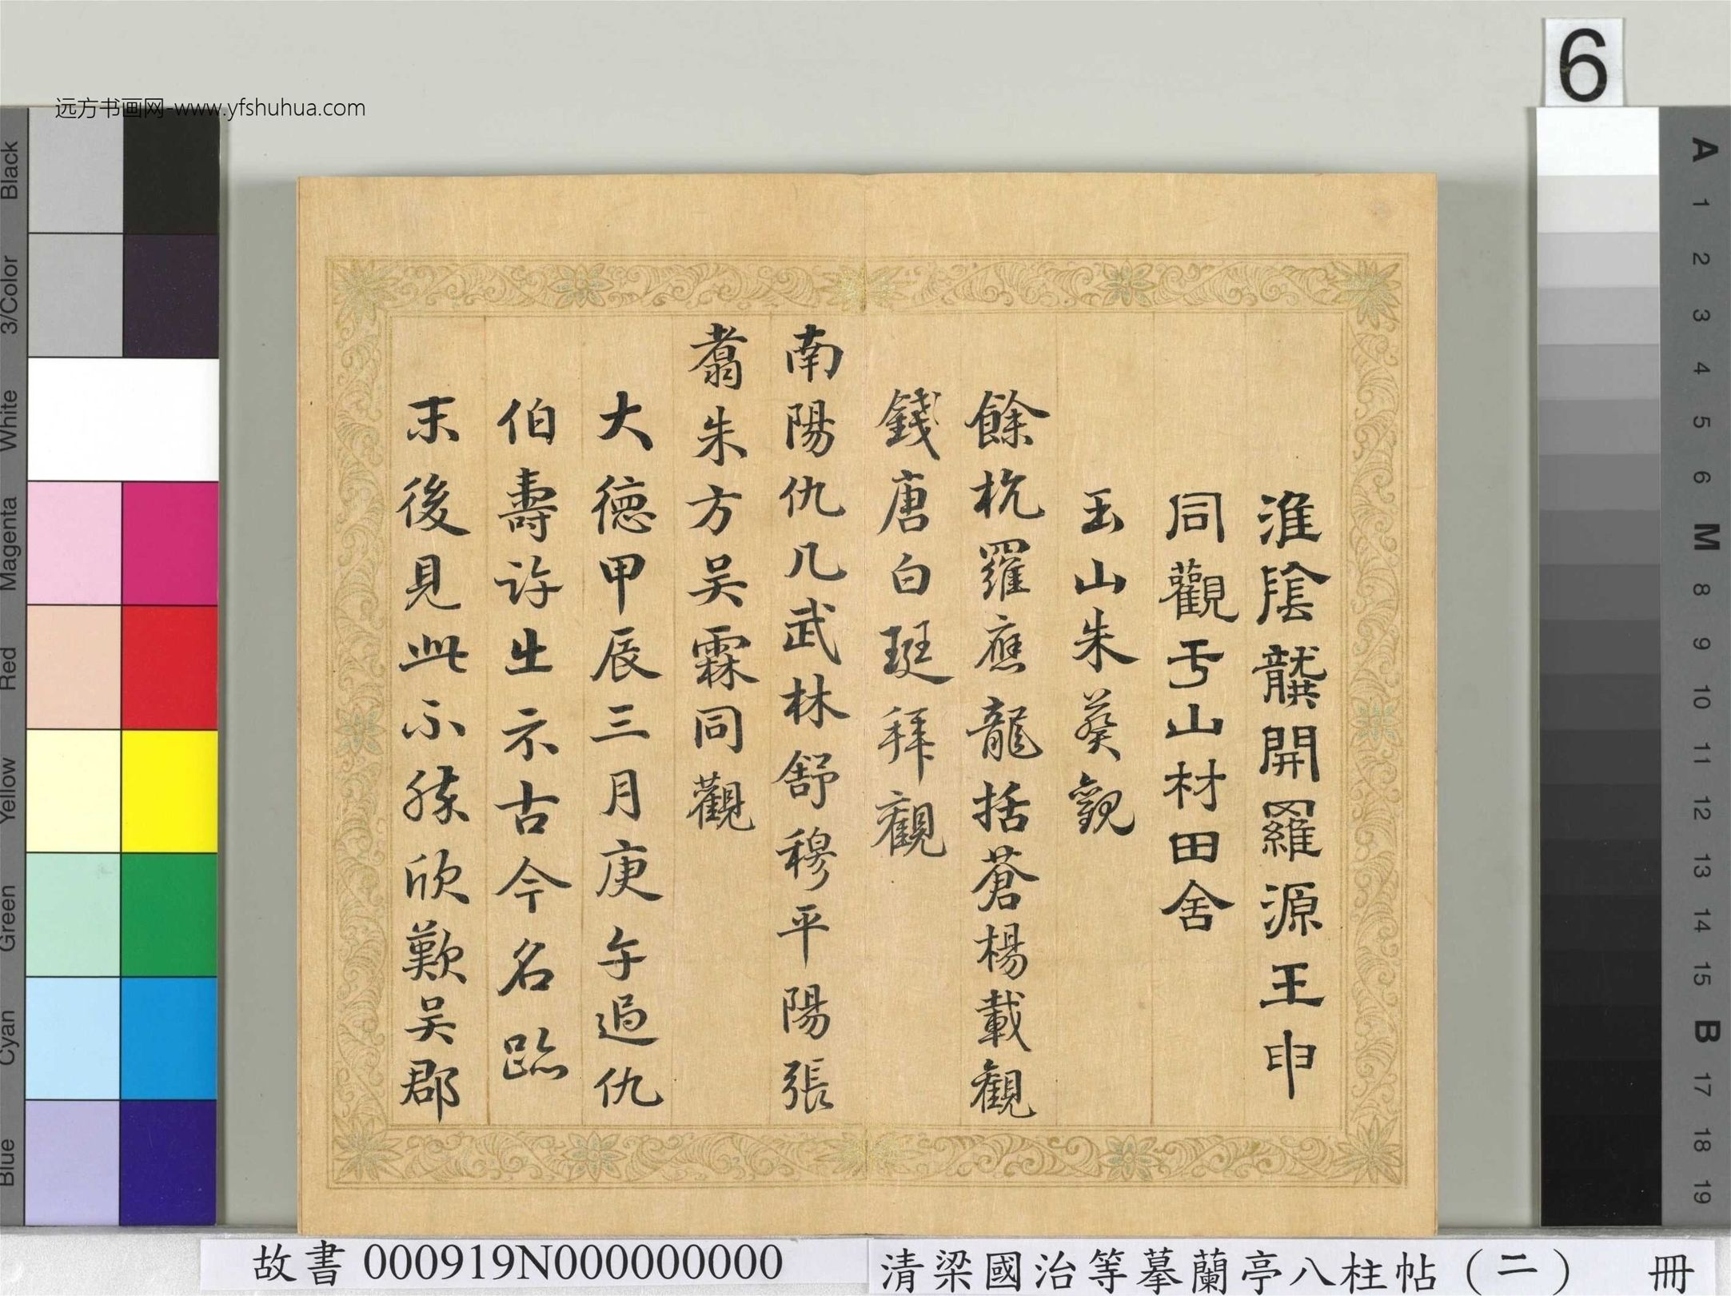 远方书画网-www.yfshuhua.com
6
淮陰龔開羅源王申
同觀于山材田舍
玉山朱葵觀
餘杭羅應龍括蒼楊載觀
錢唐白珽拜觀
南陽仇几武林舒穆平陽張
翥朱方吴霖同觀
大德甲辰三月庚午過仇
伯壽許出示古今名跡
末後見此不勝欣歎吴郡
Black
3/Color
White
Magenta
Red
Yellow
Green
Cyan
Blue
A
1
2
3
4
5
6
M
8
9
10
11
12
13
14
15
B
17
18
19
故書 000919N000000000
清梁國治等摹蘭亭八柱帖(二) 冊